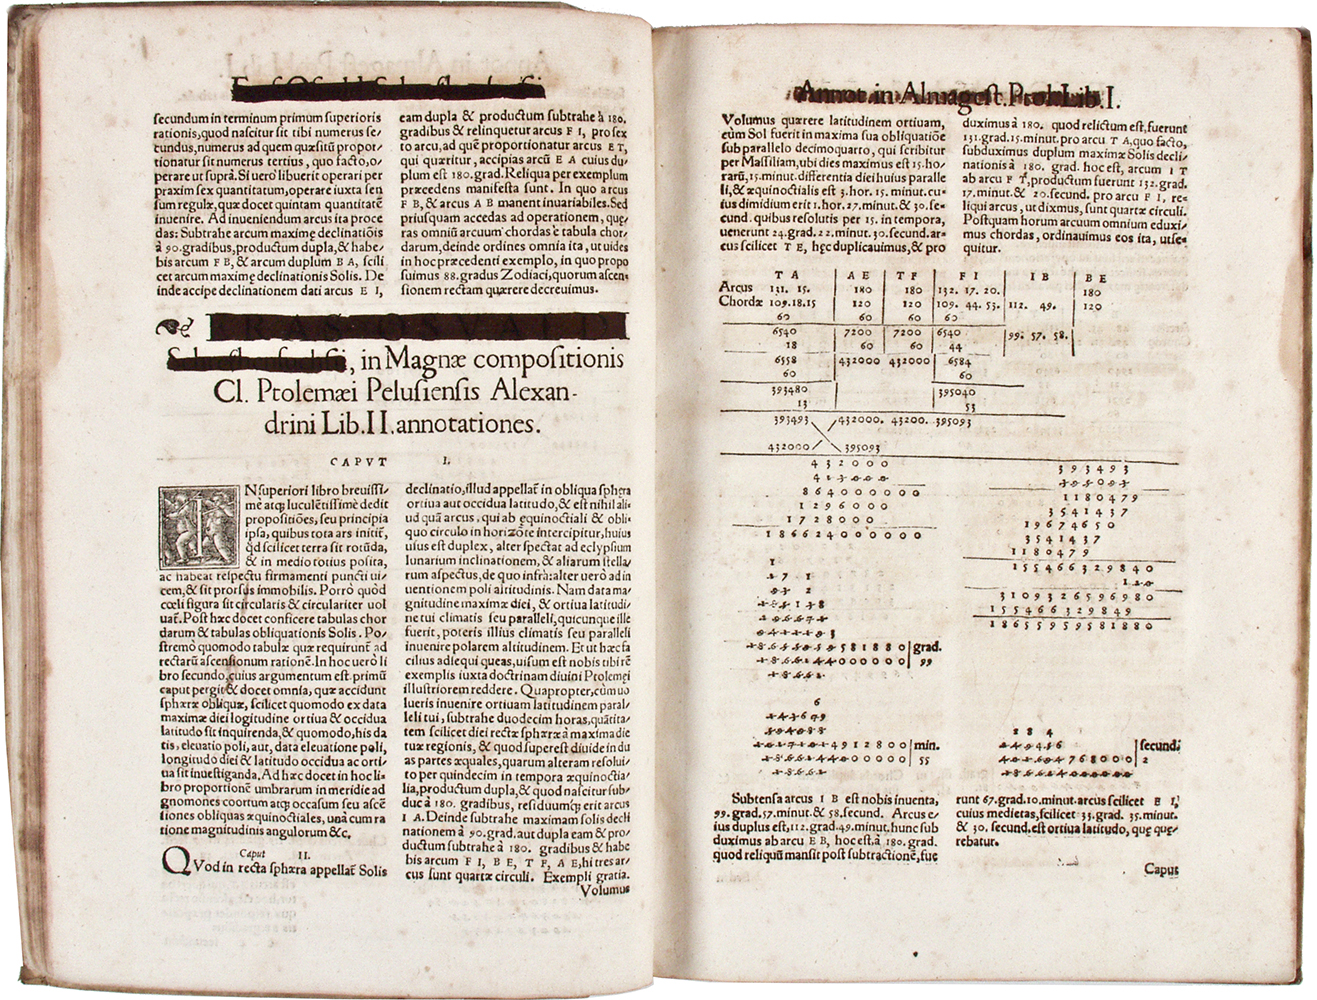 secundum in terminum primum superioris
rationis,quod nascitur sit tibi numerus se/
cundus,numerus ad quem quæsitū propor/
tionatur sit numerus tertius, quo facto,o/
perare ut suprà. Si uerò libuerit operari per
praxim sex quantitatum,operare iuxta sen
sum regulæ, quæ docet quintam quantitatē
inuenire. Ad inueniendum arcus ita proce
das: Subtrahe arcum maximę declinatiōis
à 90.gradibus,productum dupla,& habe/
bis arcum F B, & arcum duplum B A, scili
cet arcum maximę declinationis Solis. De
inde accipe declinationem dati arcus E I,
eam dupla & productum subtrahe à 180.
gradibus & relinquetur arcus F I, pro sex
to arcu,ad quē proportionatur arcus E T,
qui quæritur, accipias arcū E A cuius du/
plum est 180.grad.Reliqua per exemplum
præcedens manifesta sunt. In quo arcus
F B, & arcus A B manent inuariabiles.Sed
priusquam accedas ad operationem, quę/
ras omniū arcuum chordas è tabula chor/
darum,deinde ordines omnia ita, ut uides
in hoc præcedenti exemplo, in quo propo
suimus 88.gradus Zodiaci,quorum ascen/
sionem rectam quærere decreuimus.
, in Magnæ compositionis
Cl. Ptolemæi Pelusiensis Alexan-
drini Lib.II.annotationes.
CAPVT I.
INsuperiori libro breuissi/
mè atq; luculētissimè dedit
propositiōes, seu principia
ipsa, quibus tota ars initit,
qd scilicet terra sit rotūda,
& in medio totius posita,
ac habeat respectu firmamenti puncti ui/
cem,& sit prorsus immobilis. Porrò quòd
cœli figura sit circularis & circulariter uol
uat. Post hæc docet conficere tabulas chor
darum & tabulas obliquationis Solis. Po/
stremò quomodo tabulæ quæ requirunt ad
rectarū ascensionum rationē. In hoc uerò li
bro secundo,cuius argumentum est primū
caput pergit & docet omnia, quæ accidunt
sphæræ obliquæ, scilicet quomodo ex data
maximæ diei lōgitudine ortiua & occidua
latitudo sit inquirenda,& quomodo,his da
tis, eleuatio poli, aut, data eleuatione poli,
longitudo diei & latitudo occidua ac orti/
ua sit inuestiganda. Ad hæc docet in hoc li/
bro proportionē umbrarum in meridie ad
gnomones coortum atq; occasum seu ascē
siones obliquas æquinoctiales, unà cum ra
tione magnitudinis angulorum &c.
Caput II.
QVod in recta sphæra appellat Solis
declinatio,illud appellat in obliqua sphęra
ortiua aut occidua latitudo,& est nihil ali/
ud quā arcus, qui ab ęquinoctiali & obli/
quo circulo in horizōte intercipitur,huius
uius est duplex, alter spectat ad eclypsium
lunarium inclinationem, & aliarum stella/
rum aspectus,de quo infrà:alter uerò ad in
uentionem poli altitudinis. Nam data ma/
gnitudine maximæ diei, & ortiua latitudi/
ne tui climatis seu paralleli, quicunque ille
fuerit, poteris illius climatis seu paralleli
inuenire polarem altitudinem. Et ut hæc fa
cilius adsequi queas,uisum est nobis tibi rē
exemplis iuxta doctrinam diuini Ptolemęi
illustriorem reddere. Quapropter,cùm uo
lueris inuenire ortiuam latitudinem paral/
leli tui, subtrahe duodecim horas,quātita/
tem scilicet diei rectæ sphæræ à maxima die
tuæ regionis, & quod superest diuide in du
as partes æquales,quarum alteram resolui/
to per quindecim in tempora æquinoctia/
lia,productum dupla,& quod nascitur sub/
duc à 180. gradibus, residuumq; erit arcus
I A.Deinde subtrahe maximam solis decli
nationem à 90.grad.aut dupla eam & pro/
ductum subtrahe à 180. gradibus & habe
bis arcum F I, B E, T F, A E,hi tres ar/
cus sunt quartæ circuli. Exempli gratia.
Volumus
Annot. in Almagest. Ptol. Lib. I.
Volumus quærere latitudinem ortiuam,
cùm Sol fuerit in maxima sua obliquatiōe
sub parallelo decimoquarto, qui scribitur
per Massiliam,ubi dies maximus est 15.ho/
rarū,15.minut.differentia diei huius paralle
li,& æquinoctialis est 3.hor.15.minut.cu/
ius dimidium erit 1.hor.27.minut.& 30.se/
cund. quibus resolutis per 15. in tempora,
uenerunt 24.grad.22.minut.30.secund.ar/
cus scilicet T E, hęc duplicauimus,& pro
duximus à 180. quod relictum est,fuerunt
131.grad.15.minut.pro arcu T A,quo facto,
subduximus duplum maximæ Solis decli/
nationis à 180. grad. hoc est, arcum I T
ab arcu F T,productum fuerunt 132.grad.
17.minut.& 20.secund. pro arcu F I, re/
liqui arcus, ut diximus, sunt quartæ circuli.
Postquam horum arcuum omnium eduxi/
mus chordas, ordinauimus eos ita, utse/
quitur.
T A A E T F F I I B B E
Arcus 131. 15. 180 180 132. 17. 20. 180
Chordæ 109.18.15 120 120 109. 44. 53. 112. 49. 120
60 60 60 60
6540 7200 7200 6540 99. 57. 58.
18 60 60 44
6558 432000 432000 6584
60 60
393480 395040
13 53
393493 432000. 432000. 395093
432000 395093
432000 393493
395093
8640000000 1180479
1296000 3541437
1728000 19674650
186624000000 3541437
1180479
155466329840
120
3109326596980
1554663298 49
18655959581880
581880 grad.
000000 99
6
4912800 min.
00000 55
284
768000 secund.
2
Subtensa arcus I B est nobis inuenta,
99.grad.57.minut.& 58.secund. Arcus e/
ius duplus est,112.grad.49.minut.hunc sub
duximus ab arcu E B, hoc est,à 180.grad.
quod reliquū mansit post subtractionē,fue
runt 67.grad.10.minut.arcus scilicet E I,
cuius medietas,scilicet 33.grad. 35.minut.
& 30. secund.est ortiua latitudo, quę quę/
rebatur.
Caput